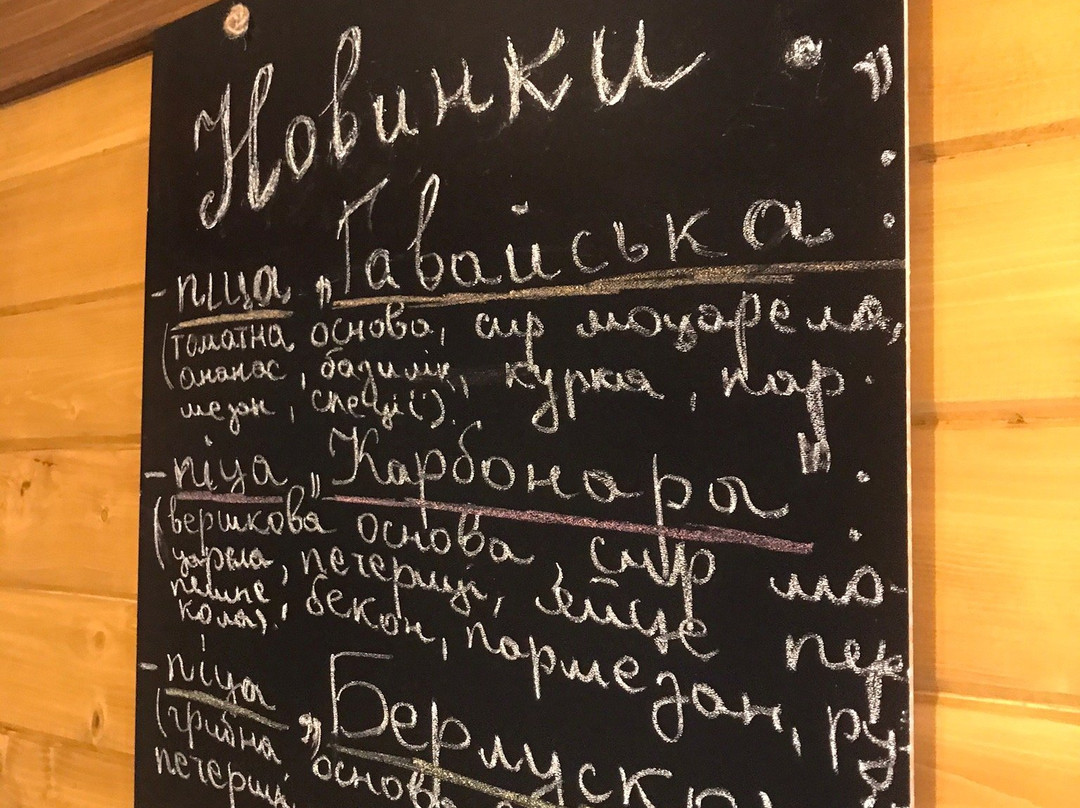 Новинки
- піца „Гавайська" :
(томатна основа, сир моцарела,
ананас, базилік, курка, пар-
мезан, спеції).
- піца „Карбонара" :
(вершкова основа, сир мо-
царела, печериці, яйце пер
бекон, пармезан, ру
- піца „Берлуско
(грибна основа
печериці